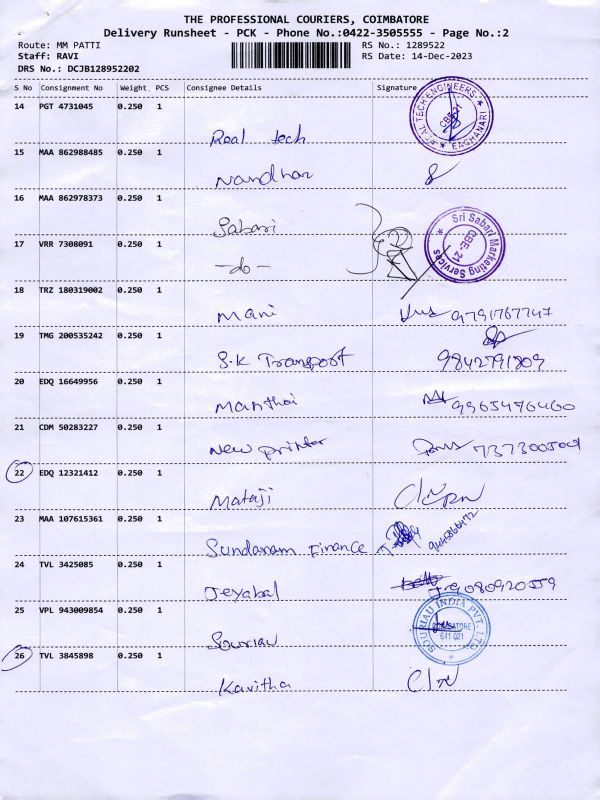 THE PROFESSIONAL COURIERS, COIMBATORE
Delivery Runsheet - PCK - Phone No.:0422-3505555 - Page No.:2
Route: MM PATTI RS No.: 1289522
Staff: RAVI RS Date: 14-Dec-2023
DRS No.: DCJB128952202
S No Consignment No Weight PCS Consignee Details Signature
14 PGT 4731045 0.250 1
Real tech
REAL TECH ENGINEERS CBE-21 EACHANARI
15 MAA 862988485 0.250 1
Nandhar
16 MAA 862978373 0.250 1
Sabari
Sri Sabari Marketing Services CBE-21
17 VRR 7308091 0.250 1
-do-
18 TRZ 180319002 0.250 1
Mani 9791767747
19 TMG 200535242 0.250 1
S.K Transport 9842791809
20 EDQ 16649956 0.250 1
Manthai 9965476460
21 CDM 50283227 0.250 1
New printer
22 EDQ 12321412 0.250 1
Mataji
23 MAA 107615361 0.250 1
Sundaram Finance
24 TVL 3425085 0.250 1
Jeyabal 9080920559
25 VPL 943009854 0.250 1
Souriau
SOURIAU INDIA PVT. LTD COIMBATORE 641 021
26 TVL 3845898 0.250 1
Kavitha